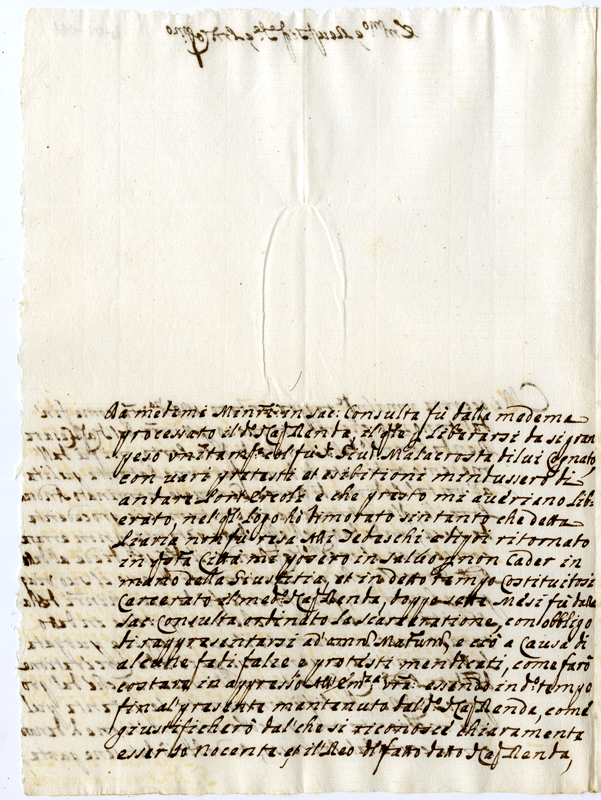 Da medemi Minri: in sac: Consulta fù dalla medema
processato il do: Caf Renda, il qle p liberarsi da si gran
peso unitamte: col fù Sr: Giud: Malacrosta di lui Cognato
con vari pretesti et esibitioni m'indussero di
andare à Port'Ercole e che presto mi averiano lib-
erato, nel ql: loco hò dimorato sin tanto che detta
Piazza non fù resa alli Tedeschi e dipoi ritornato
in qsta Città mi posero in salvo p non cader in
mano della Giustitia, et in detto tempo Costituitosi
Carcerato il medo: Caf Renda, doppo sette Mesi fù dalla
sac: Consulta ordinato la scarceratione, con obbligo
di rappresentarsi ad omne Mandatum, e ciò a Causa di
alcune fedi false e protesti mendicati, come farò
costare in appresso all'Emza: Vra: essendo in do: tempo
fin al presente mantenuto dal do: Caf Renda, come
giustificherò dal che si riconosce chiaramente
esser Io Nocente et il Reo di fatto detto Caf Renda,